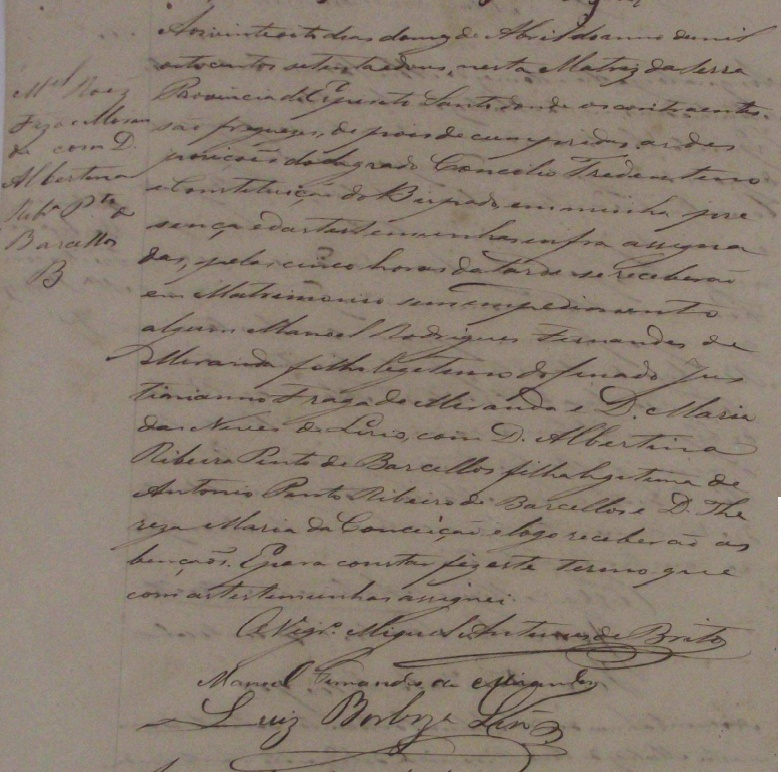 Mel Roiz
Frz e Miran
da com D.
Albertina
Ribª Pto de
Barcellos
B
Aos vinte oito dias do mez de Abril do anno de mil
oitocentos setenta e dous, nesta Matriz da Serra
Provincia do Espirito Santo donde os contraentes
são freguezes, depois de cumpridas as des
posições do Sagrado Concilio Tredentino
e Constituição do Bispado em minha pre
sença e das testemunhas infra assigna
das, pelas cinco horas da tarde se receberão
em Matrimonio sem empedimento
algum Manoel Rodrigues Fernandes de
Miranda filho legetimo do finado Jus
tinianno Fraga de Miranda e D. Maria
das Neves de Lirio, com D. Albertina
Ribeiro Pinto de Barcellos filha legetima de
Antonio Pinto Ribeiro de Barcellos e D. The
reza Maria da Conceição e logo receberão as
bençaõs. E para constar fiz este termo que
com as testemunhas assignei.
O Vigrº Miguel Antunes de Brito
Manoel Fernandes de Miranda
Luiz Borboza